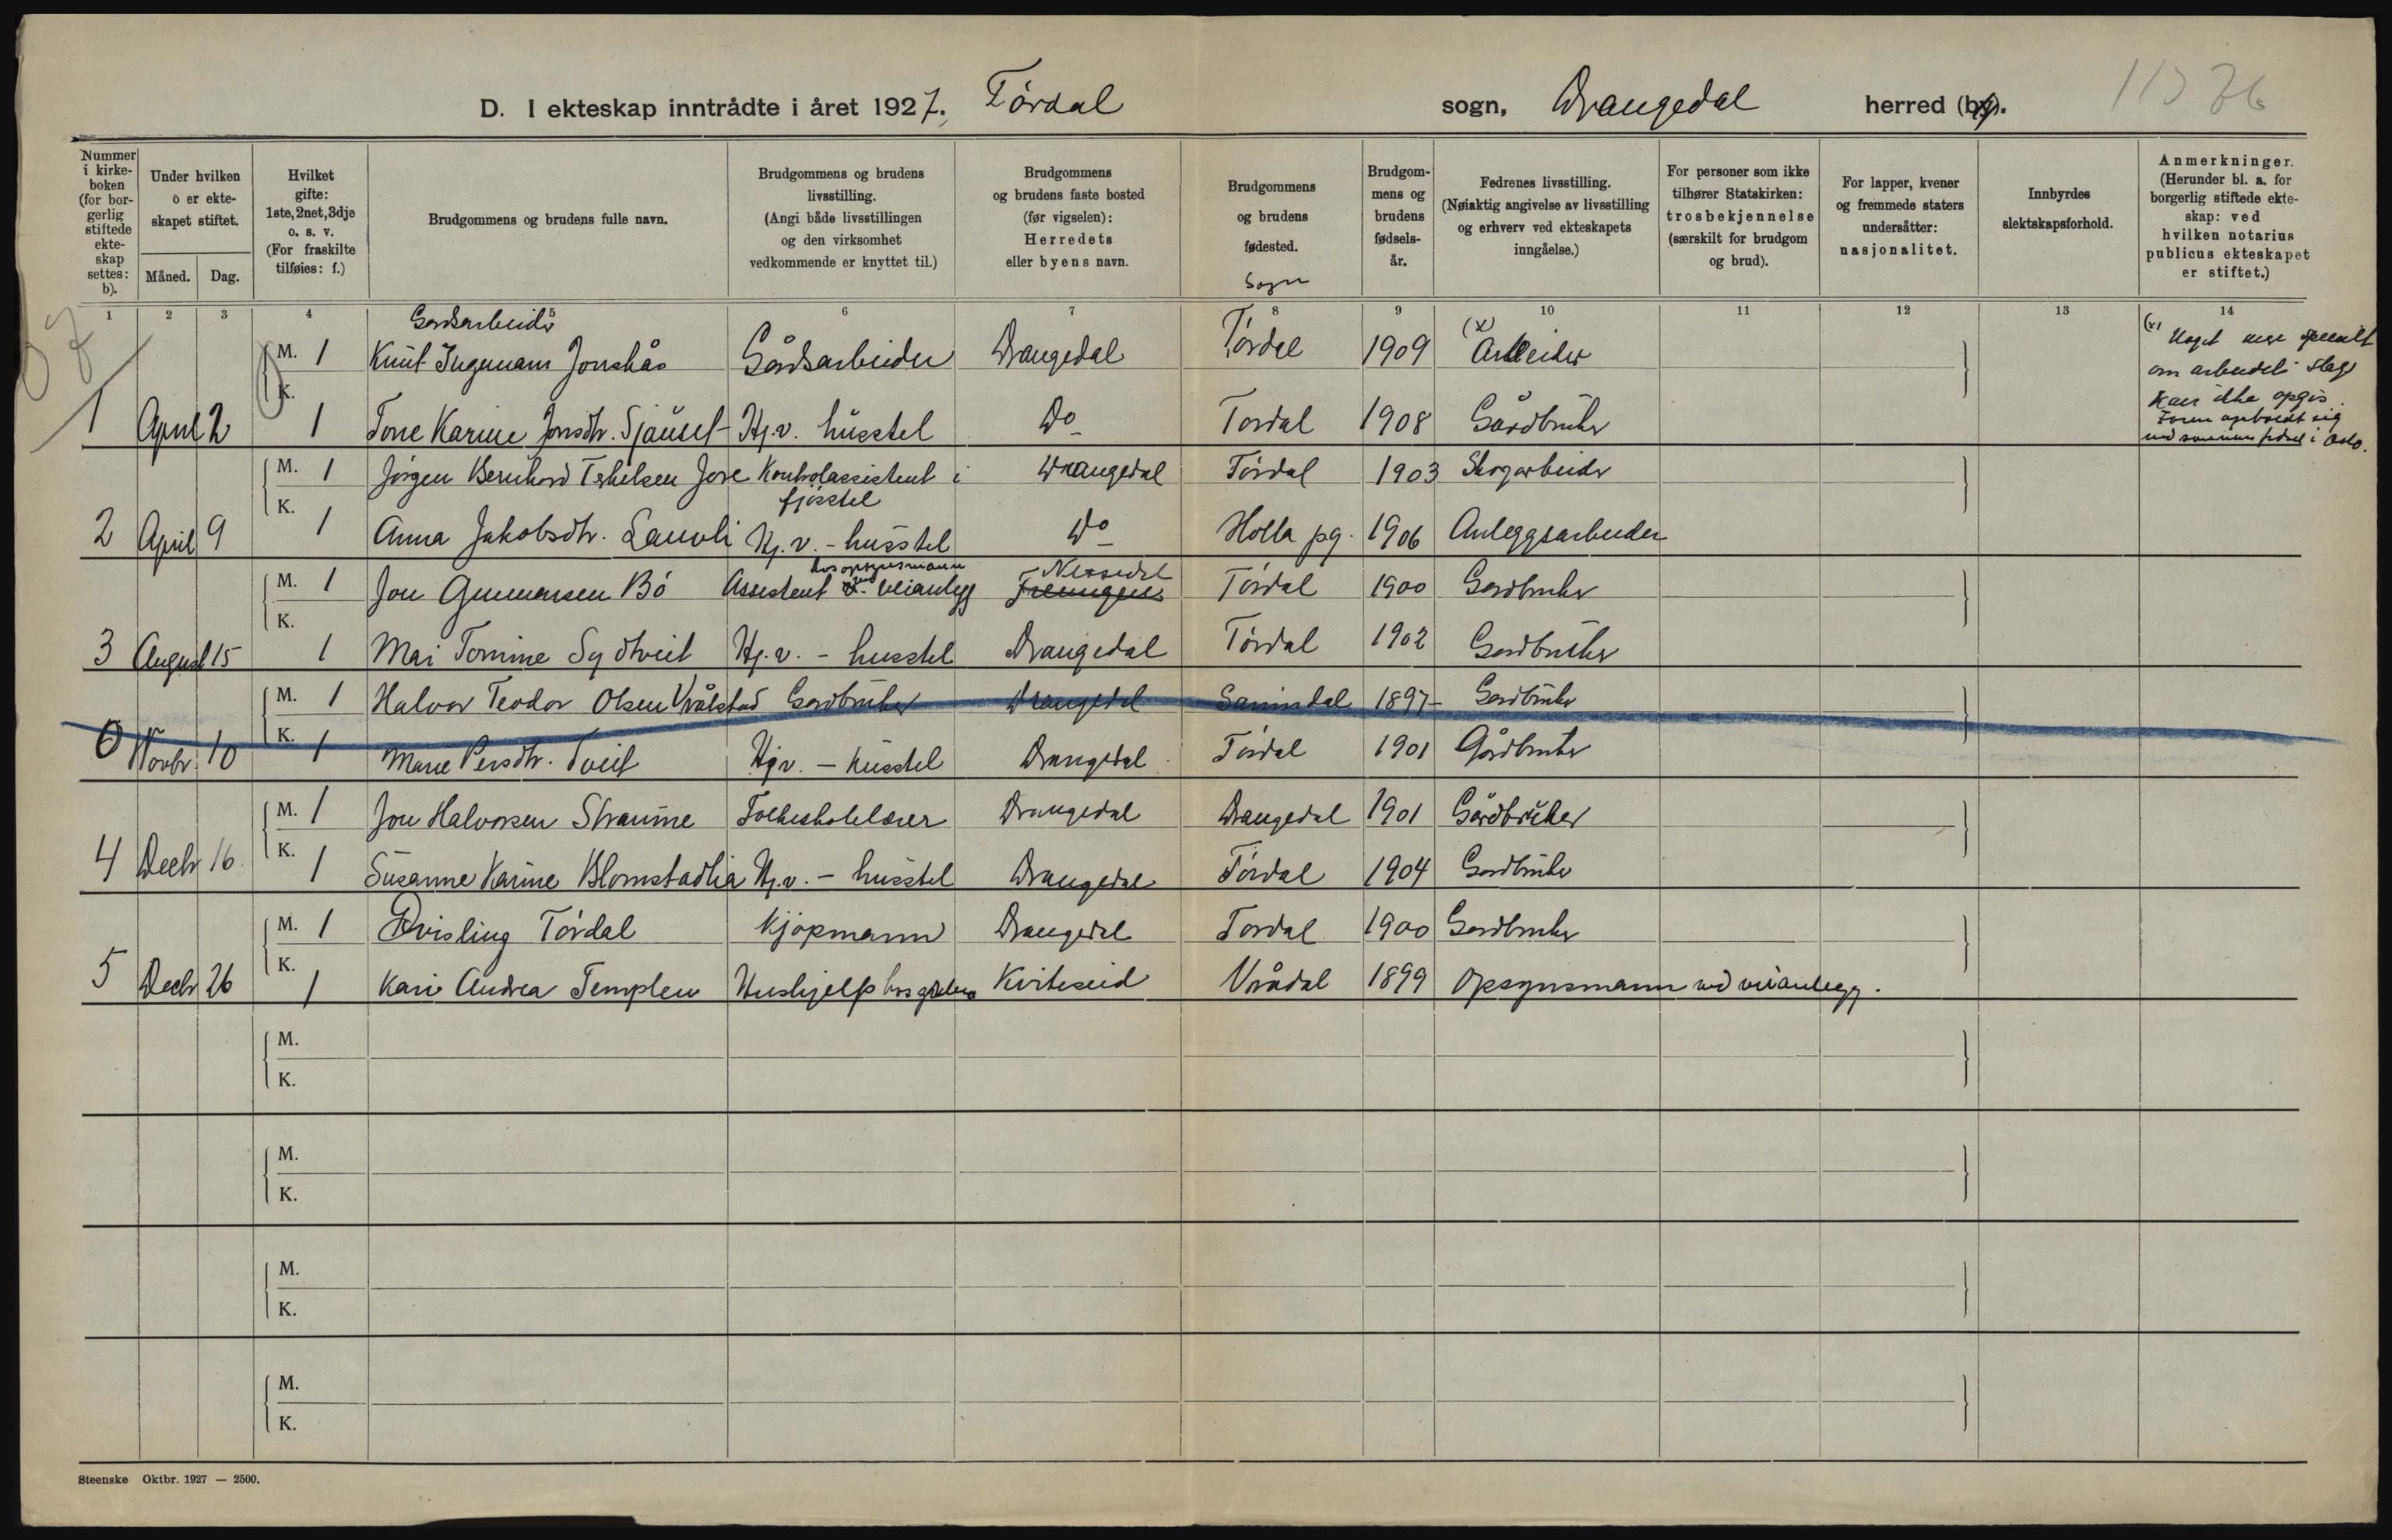 D. I ekteskap inntrådte i året 1927. Tórdal sogn, Drangedal herred (by).
Nummer i kirkeboken (for borgerlig stiftede ekteskap settes: b).
Under hvilken o er ekteskapet stiftet.
Måned. Dag.
Hvilket gifte: 1ste, 2net, 3dje o. s. v. (For fraskilte tilføies: f.)
Brudgommens og brudens fulle navn.
Brudgommens og brudens livsstilling. (Angi både livsstillingen og den virksomhet vedkommende er knyttet til.)
Brudgommens og brudens faste bosted (før vigselen): Herredets eller byens navn.
Brudgommens og brudens fødested. Sogn
Brudgommens og brudens fødselsår.
Fedrenes livsstilling. (Nøiaktig angivelse av livsstilling og erhverv ved ekteskapets inngåelse.)
For personer som ikke tilhører Statskirken: trosbekjennelse (særskilt for brudgom og brud).
For lapper, kvener og fremmede staters undersåtter: nasjonalitet.
Innbyrdes slektskapsforhold.
Anmerkninger. (Herunder bl. a. for borgerlig stiftede ekteskap: ved hvilken notarius publicus ekteskapet er stiftet.)
1 2 3 4 5 6 7 8 9 10 11 12 13 14
Gårdsarbeider
M. 1 Knut Ingemann Jonskås Gårdsarbeider Drangedal Tórdal 1909 (x) Arbeider
(x) Noget mere specielt
om arbeidets slags
kan ikke opgis.
1 April 2 K. 1 Tone Karine Jonsdtr. Sjåuset Hj.v. husstel Do Tordal 1908 Gårdbruker
M. 1 Jórgen Bernhard Terkelsen Jore Kontrolassistent i fjósstel Drangedal Tórdal 1903 Skogarbeider
2 April 9 K. 1 Anna Jakobsdtr. Lauvli Hj.v. - husstel Do Holla pg. 1906 Anleggsarbeider
M. 1 Jon Gunnarsen Bó Assistent hos opsynsmann ved veianlegg Nissedal Tórdal 1900 Gardbruker
3 August 15 K. 1 Mai Tomine Sydtveit Hj.v. - husstel Drangedal Tórdal 1902 Gardbruker
M. 1 Halvor Teodor Olsen Vrålstad Gardbruker Drangedal Sannidal 1897 Gardbruker
0 Novbr. 10 K. 1 Marie Persdtr. Tveit Hjv. - husstel Drangedal Tórdal 1901 Gårdbruker
M. 1 Jon Halvorsen Straume Folkeskolelærer Drangedal Drangedal 1901 Gårdbruker
4 Decbr 16 K. 1 Susanne Karine Blomstadlia Hj.v. - husstel Drangedal Tórdal 1904 Gardbruker
M. 1 Qvisling Tórdal Kjöpmann Drangedal Tordal 1900 Gardbruker
5 Decbr 26 K. 1 Kari Andrea Templen Hushjelp hos Kviteseid Vrådal 1899 Opsynsmann ved veianlegg.
M.
K.
M.
K.
M.
K.
M.
K.
Steenske Oktbr. 1927 — 2500.